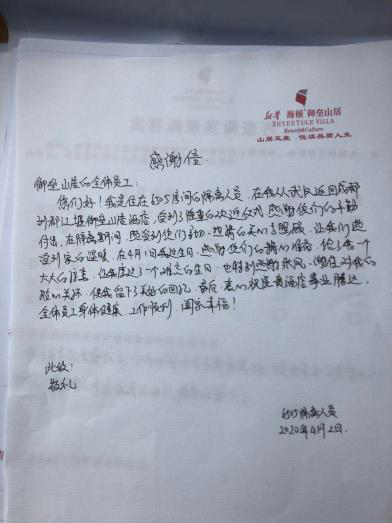 新华 海颐®御垒山居
XHYEETULE VILLA
Resort&Culture
山居玉垒 悦读品质人生
感谢信
御垒山居的全体员工:
你们好!我是住在6505房间的隔离人员,在我从武汉返回成都
到都江堰御垒山居酒店,受到了隆重的欢迎仪式,感谢你们的辛勤
付出,在隔离期间,感受到你们亲切、热情的关心与照顾,让我们感
受到家的温暖,在4月1日我过生日,感谢你们的精心准备,给了我一个
大大的惊喜,让我度过了一个难忘的生日,也特别感谢
的关怀,使我留下了美好的回忆。最后,衷心祝愿贵酒店事业腾达,
全体员工身体健康,工作顺利,阖家幸福!
此致!
敬礼
6505隔离人员
2020年4月2日.